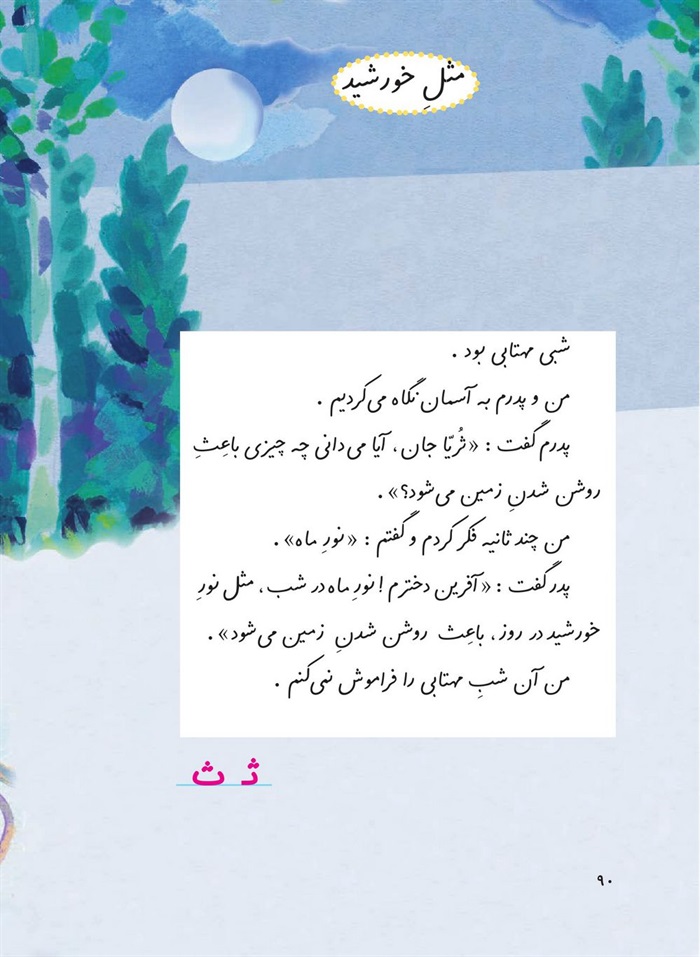 مثلِ خورشید
شبی مهتابی بود .
من و پدرم به آسمان نگاه می‌کردیم .
پدرم گفت : «ثُریّا جان، آیا می‌دانی چه چیزی باعِثِ
روشن شدنِ زمین می‌شود؟» .
من چند ثانیه فکر کردم و گفتم : «نورِ ماه» .
پدر گفت : «آفرین دخترم ! نورِ ماه در شب، مثل نورِ
خورشید در روز، باعِث روشن شدنِ زمین می‌شود» .
من آن شبِ مهتابی را فراموش نمی‌کنم .
ثـ ث
۹۰